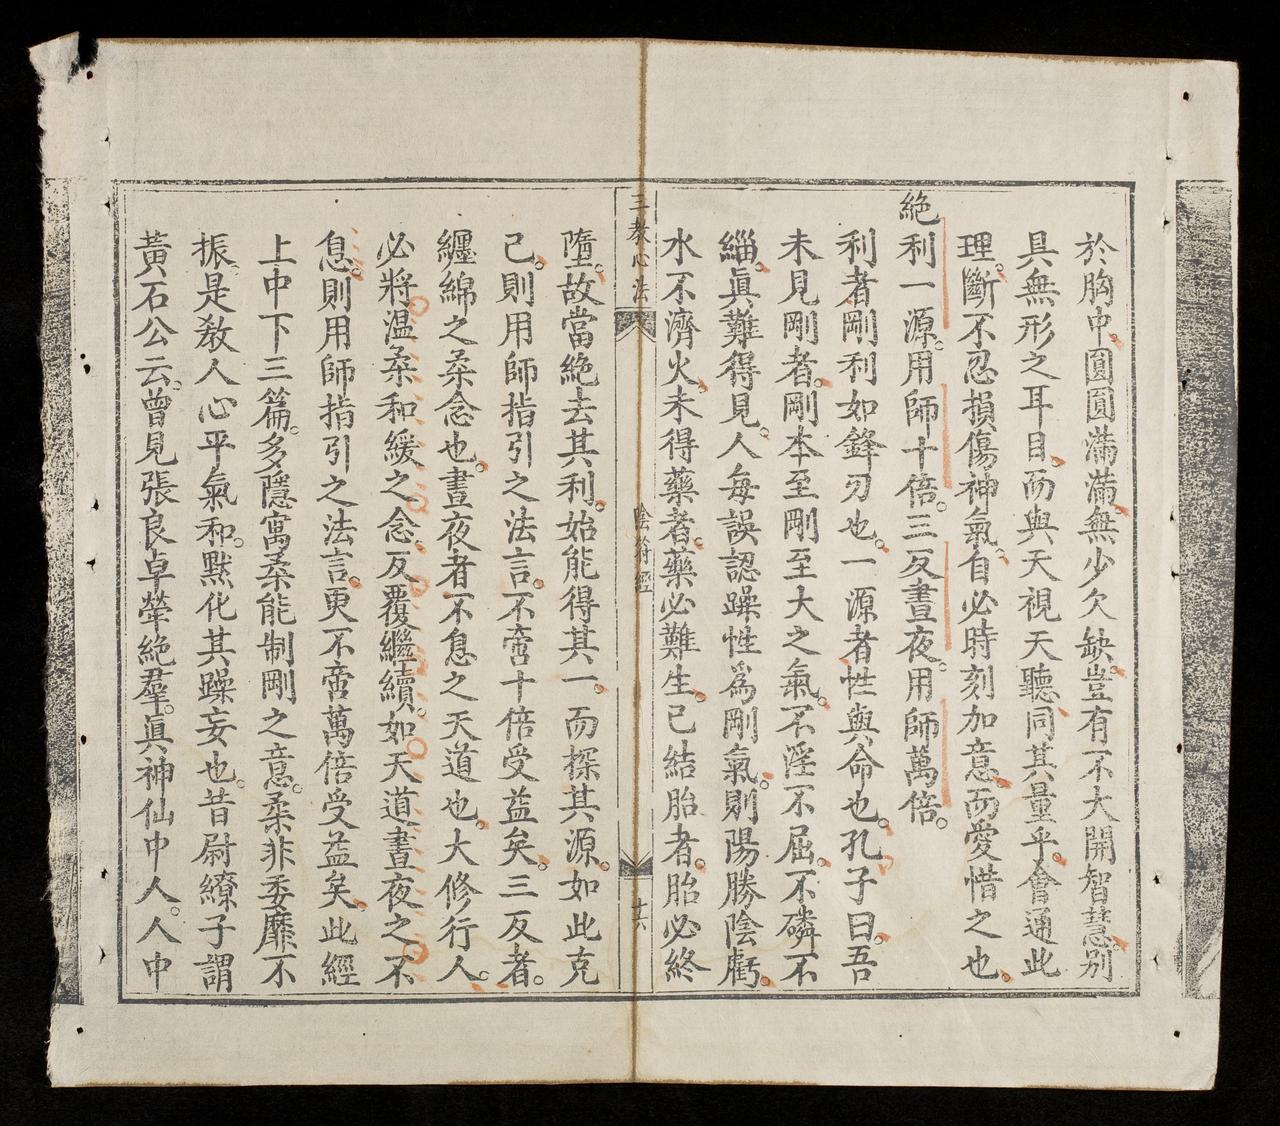 於胸中。圓圓滿滿。無少欠缺。豈有不大開智慧。别
具無形之耳目。而與天視天聽。同其量乎。會通此
理。斷不忍損傷神氣。自必時刻加意。而愛惜之也。
絶利一源。用師十倍。三反晝夜。用師萬倍。
利者剛利如鋒刃也。一源者性與命也。孔子曰。吾
未見剛者。剛本至剛至大之氣。不淫不屈。不磷不
緇。眞難得見。人每誤認躁性爲剛氣。則陽勝陰虧。
水不濟火。未得藥者。藥必難生。已結胎者。胎必終
三教心法
陰符經
十六
墮。故當絶去其利。始能得其一。而探其源。如此克
己。則用師指引之法言。不啻十倍受益矣。三反者。
纏綿之柔念也。晝夜者不息之天道也。大修行人。
必將温柔和緩之念。反覆繼續。如天道晝夜之不
息。則用師指引之法言。更不啻萬倍受益矣。此經
上中下三篇。多隱寓柔能制剛之意。柔非委靡不
振。是教人心平氣和。默化其躁妄也。昔尉繚子謂
黃石公云。曾見張良卓犖絶羣。眞神仙中人。人中